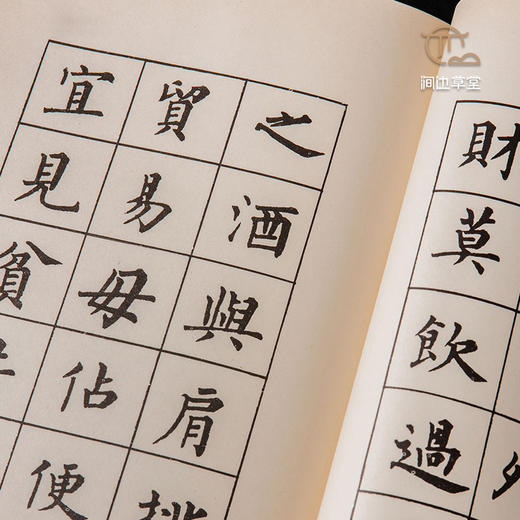 涧边草堂
財莫飲過
之酒與肩挑
貿易毋佔便
宜見貧